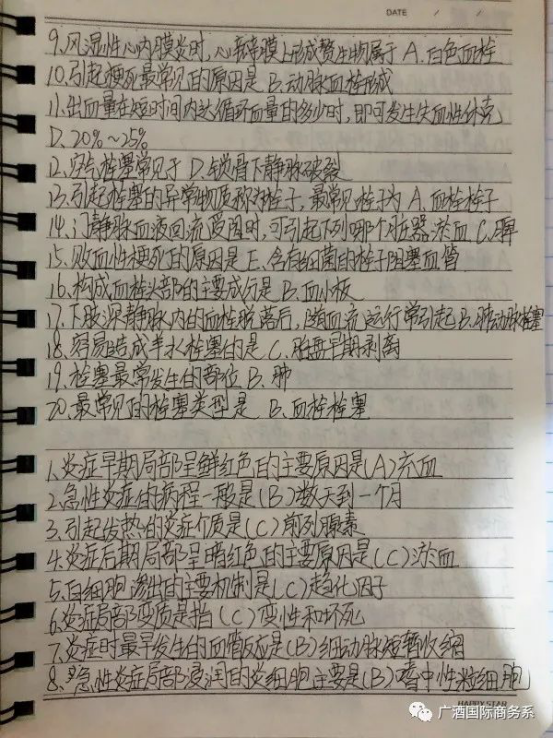 DATE / /
9.风湿性心内膜炎时,心瓣膜上形成赘生物属于 A.白色血栓
10.引起梗死最常见的原因是 B.动脉血栓形成
11.出血量在短时间内达循环血量的多少时,即可发生失血性休克
D.20%~25%
12.空气栓塞常见于 D.锁骨下静脉破裂
13.引起栓塞的异常物质称为栓子,最常见栓子为 A.血栓栓子
14.门静脉血液回流受阻时,可引起下列哪个脏器淤血 C.脾
15.败血性梗死的原因是 E.含有细菌的栓子阻塞血管
16.构成血栓头部的主要成分是 B.血小板
17.下肢深静脉内的血栓脱落后,随血流运行常引起B.肺动脉栓塞
18.容易造成羊水栓塞的是 C.胎盘早期剥离
19.栓塞最常发生的部位 B.肺
20.最常见的栓塞类型是 B.血栓栓塞
1.炎症早期局部呈鲜红色的主要原因是(A)充血
2.急性炎症的病程一般是(B)数天到一个月
3.引起发热的炎症介质是(C)前列腺素
4.炎症后期局部呈暗红色的主要原因是(C)淤血
5.白细胞渗出的主要机制是(C)趋化因子
6.炎症局部变质是指(C)变性和坏死
7.炎症时最早发生的血管反应是(B)细动脉短暂收缩
8.急性炎症局部浸润的炎细胞主要是(B)嗜中性粒细胞
HAPPY STAR
广酒国际商务系